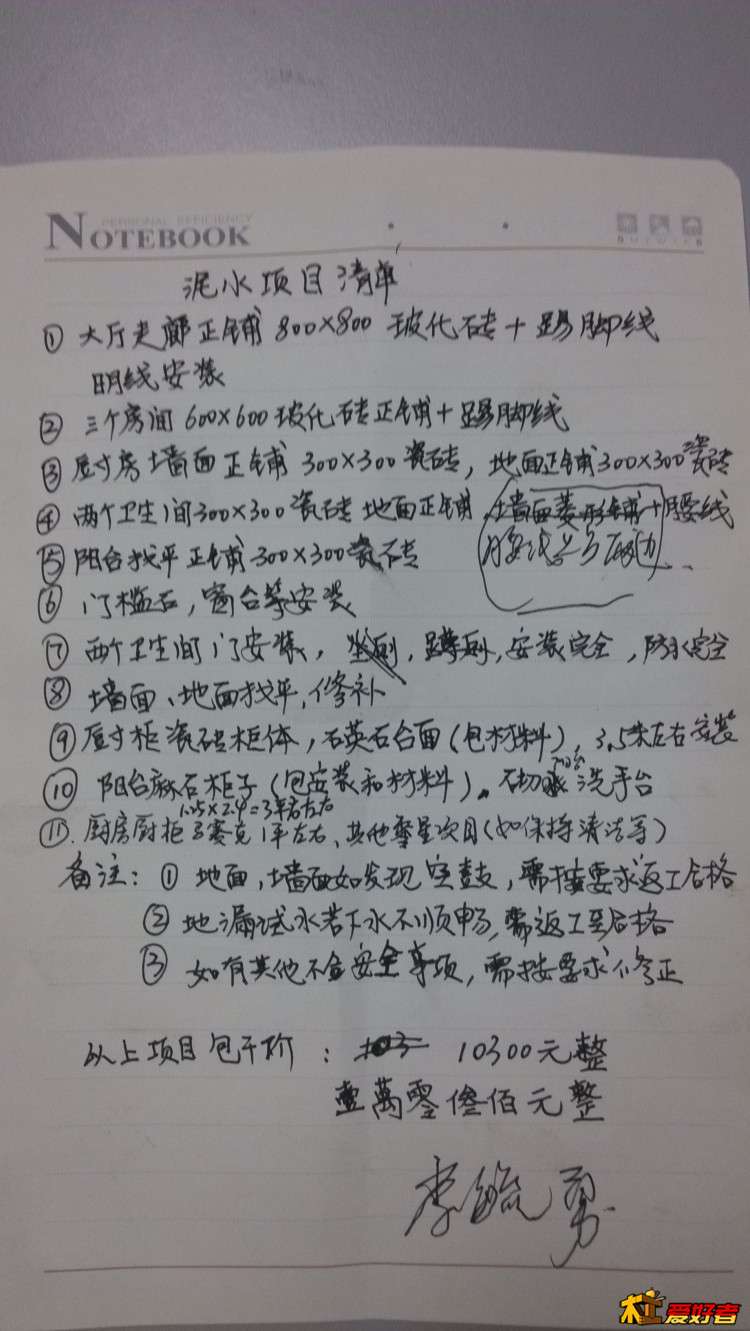 PERSONAL EFFICIENCY
NOTEBOOK
泥水项目清单
① 大厅走廊正铺 800×800 玻化砖+踢脚线
明线安装
② 三个房间 600×600 玻化砖正铺+踢脚线
③ 厨房墙面正铺 300×300 瓷砖, 地面正铺 300×300 瓷砖
④ 两个卫生间 300×300 瓷砖 地面正铺 墙面菱形铺+腰线
腰线
⑤ 阳台找平 正铺 300×300 瓷砖
⑥ 门槛石, 窗台等安装
⑦ 两个卫生间门安装, 蹲厕, 安装完全, 防水完全
⑧ 墙面、地面找平, 修补
⑨ 橱柜瓷砖柜体, 石英石台面(包材料), 3.5米左右安装
⑩ 阳台麻石柜子(包安装和材料)。砖切 洗手台
1.25×2.4=3平方左右
⑪. 厨房厨柜 马赛克 1平左右、其他零星项目(如保持清洁等)
备注: ① 地面, 墙面如发现空鼓, 需按要求返工合格
② 地漏试水若下水不顺畅, 需返工至合格
③ 如有其他不合安全事项, 需按要求修正
以上项目包干价: 10300元整
壹萬零叁佰元整
爱好者